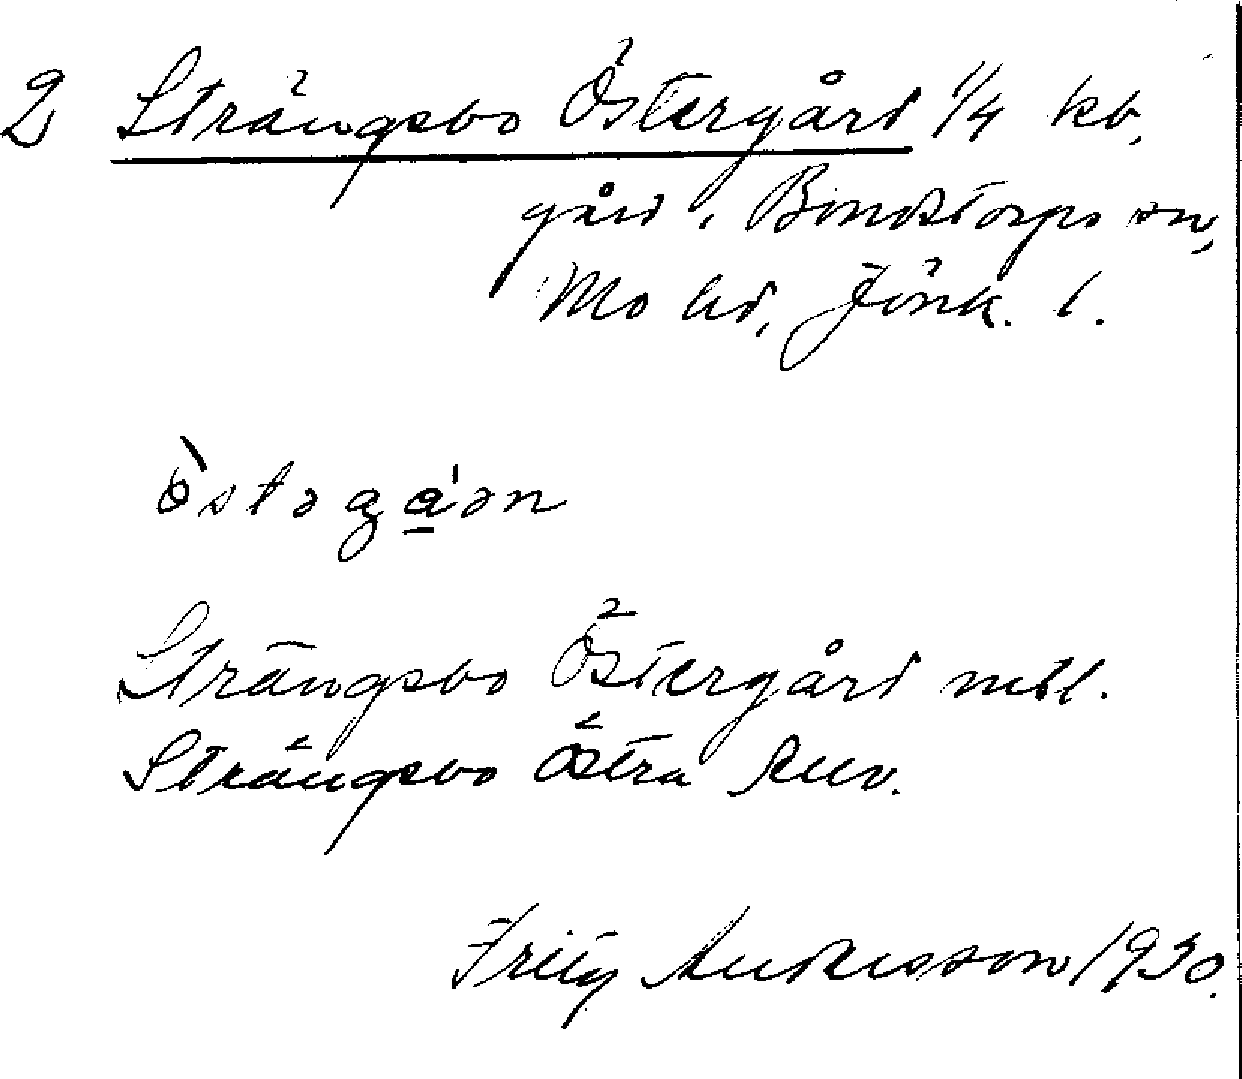 2 Strängsbo Östergård 1/4 kb,
gård i Bondstorps sn,
Mo hd, Jönk. l.
östəga̱'ən
Strängsbo Östergård mtl.
Strängsbo Östra
Andersson 1930.